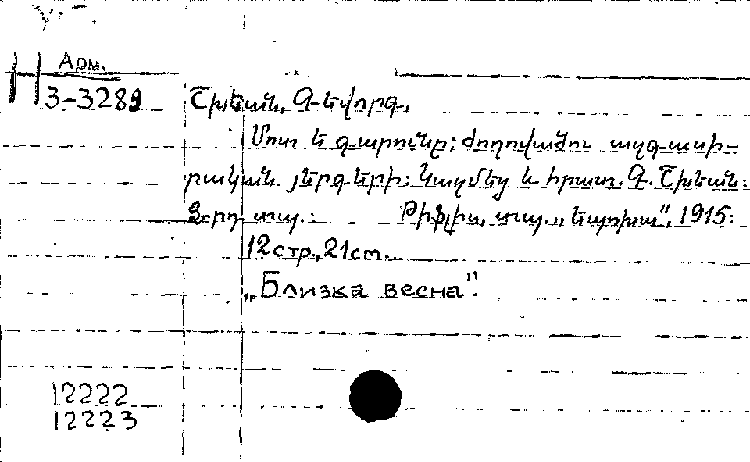 Арм.
3-3289
Շխեան, Գևորգ.
Մոտ է գարունը: Ժողովածու ազգասի-
րական յերգերի: Կազմեց և հրատ. Գ. Շխեան:
2-րդ տպ.: Թիֆլիս, տպ. „Եպոխա", 1915.
12стр., 21см.
„Близка весна".
12222
12223